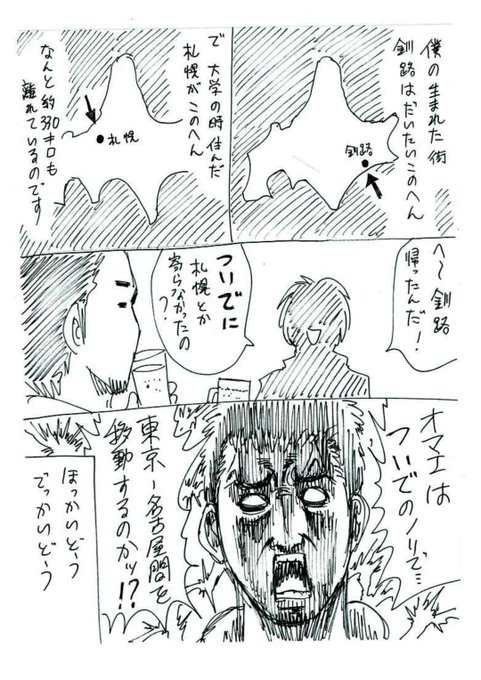 僕の生まれた街
釧路はだいたいこのへん
釧路
で 大学の時住んだ
札幌がこのへん
札幌
なんと約330キロも
離れているのです
へ〜 釧路
帰ったんだ!
ついでに
札幌とか
寄らなかったの
?
オマエは
ついでのノリで…
東京ー名古屋間を
移動するのかッ!?
ほっかいどう
でっかいどう